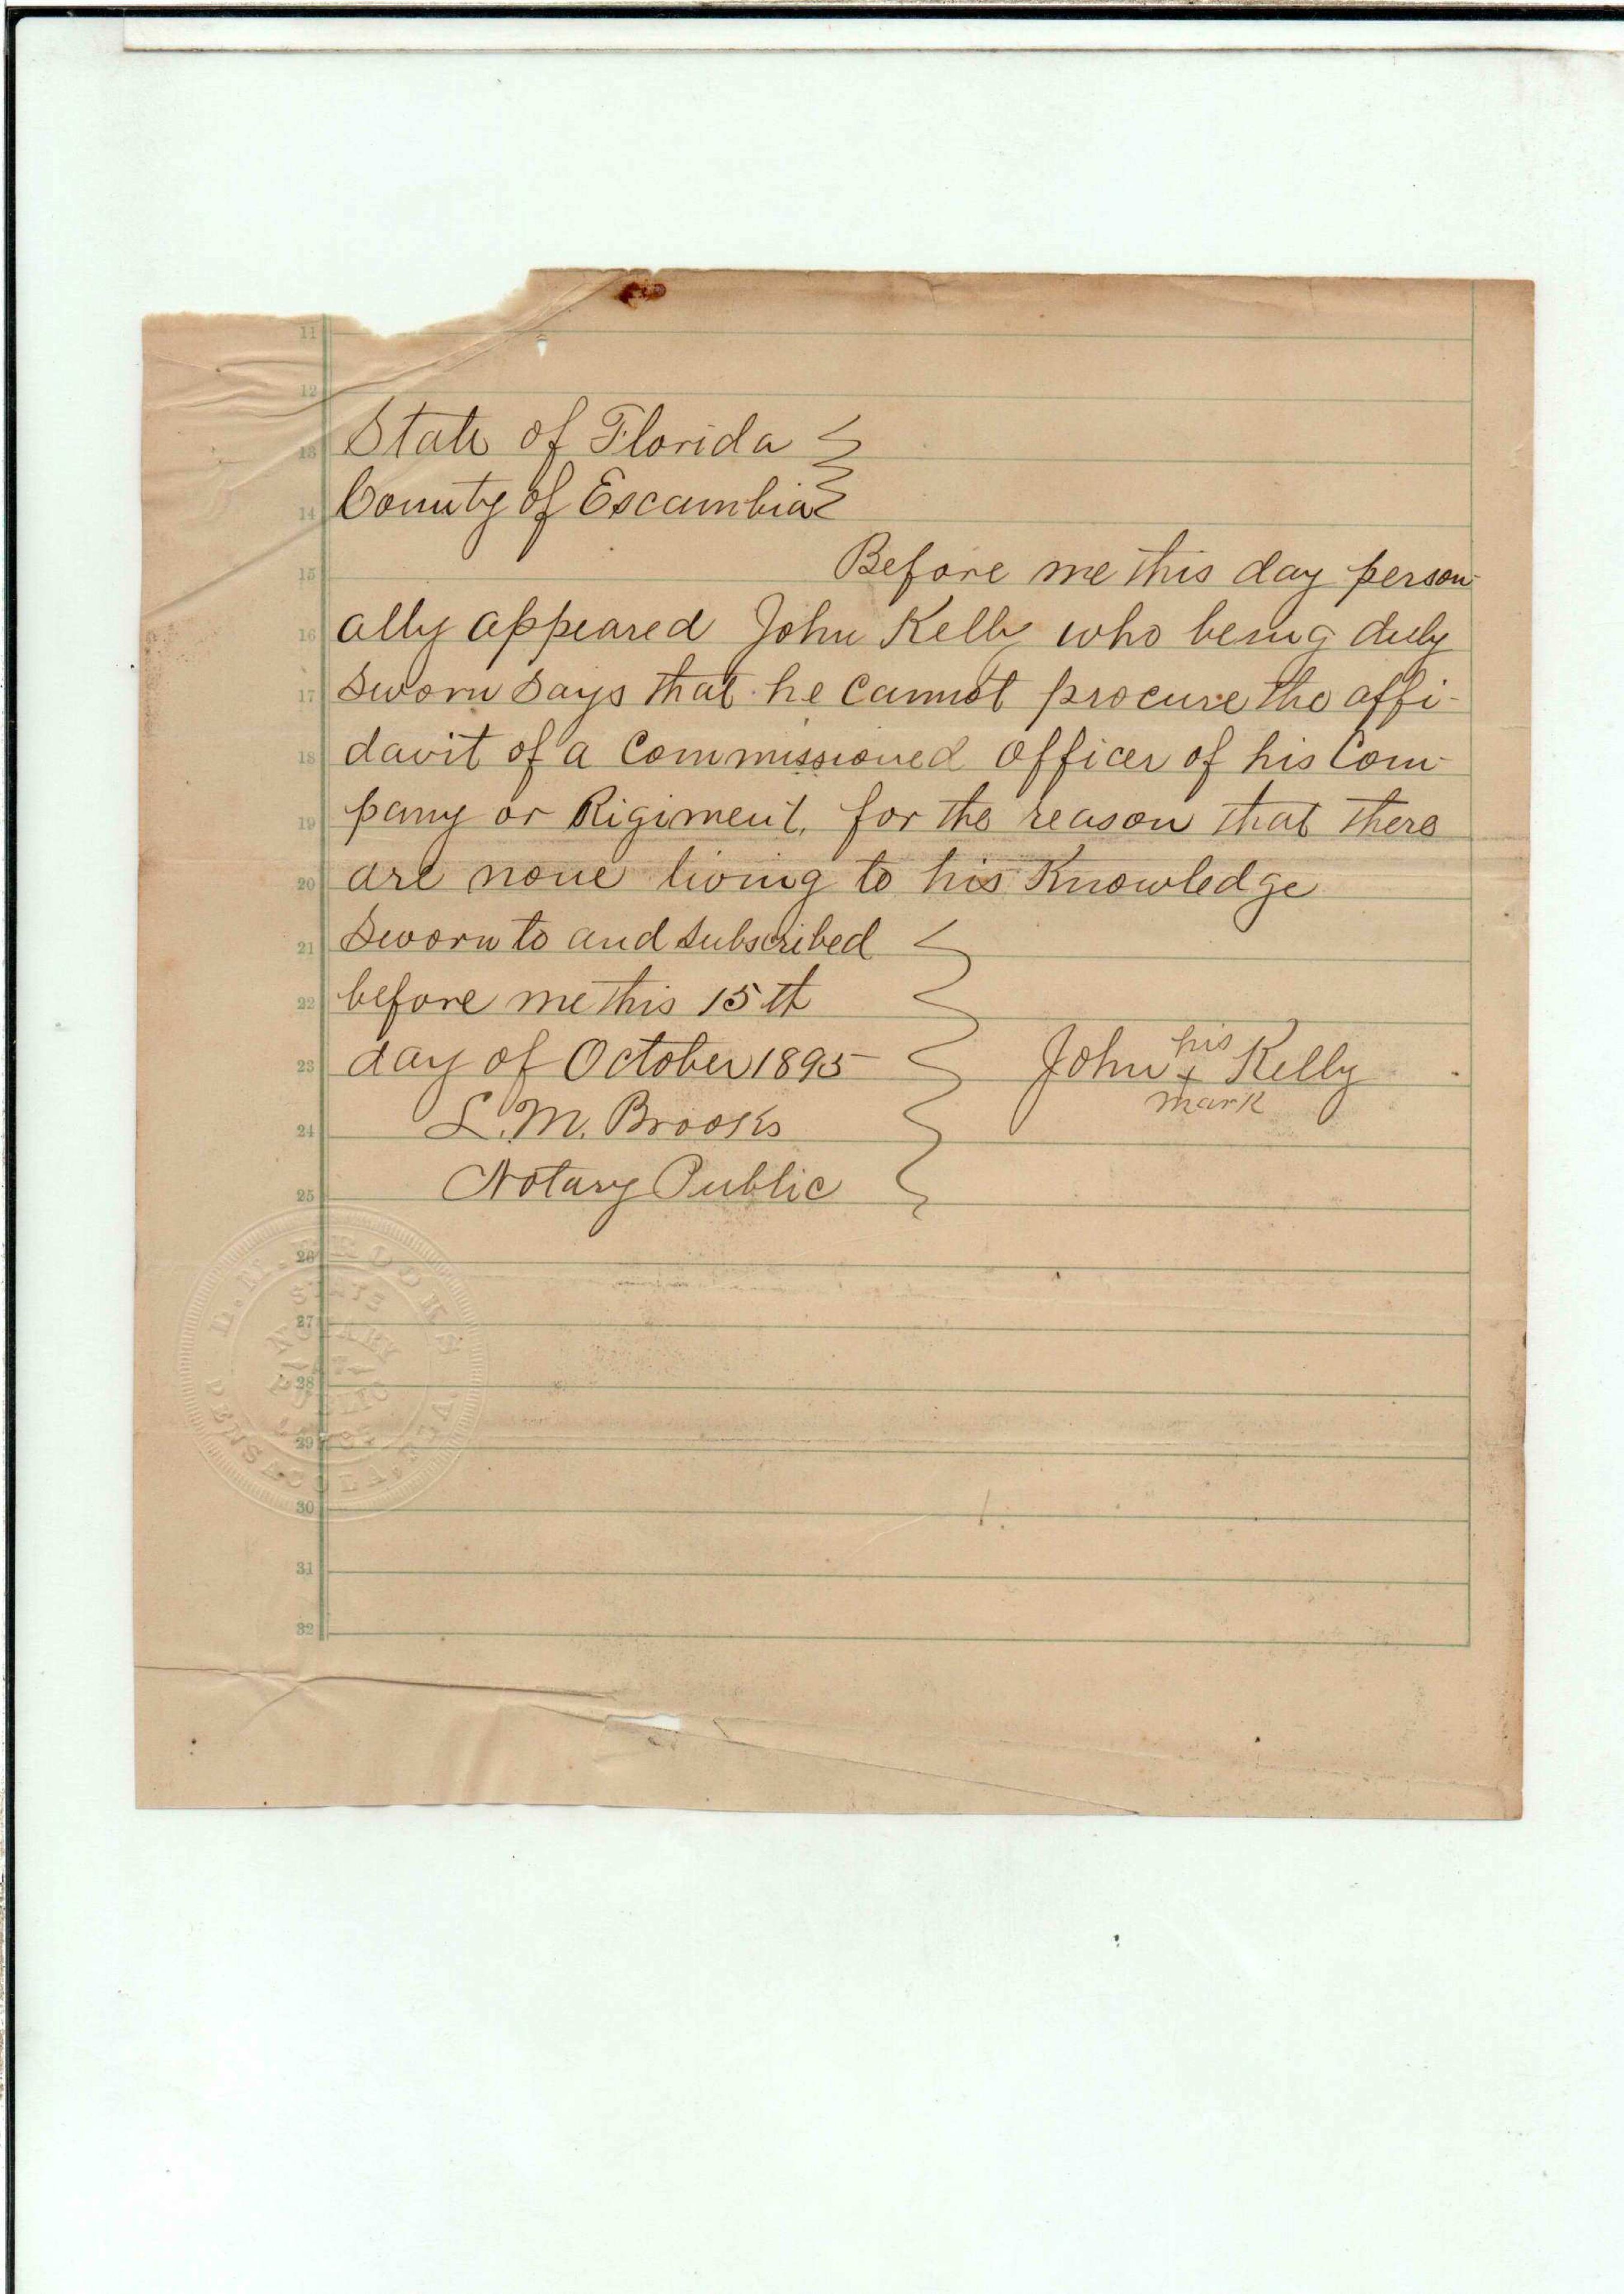 11
12
13 State of Florida
14 County of Escambia
15 Before me this day person-
16 ally appeared John Kelly who being duly
17 sworn says that he cannot procure the affi-
18 davit of a Commissioned officer of his Com-
19 pany or Rigiment, for the reason that there
20 are none living to his Knowledge
21 Sworn to and subscribed
22 before me this 15th
23 day of October 1895
his
John x Kelly
mark
24 L. M. Brooks
25 Notary Public
26
27
28
29
30
31
32
BROOKS
STATE
NOTARY
PUBLIC
PENSACOLA, FLA.